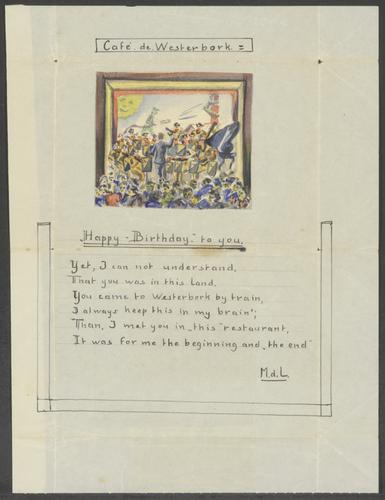 Café de Westerbork =
„Happy - Birthday" to you.
Yet, I can not understand,
That you was in this Land.
You came to Westerbork by train,
I always keep this in my brain";
Than, I met you in „this" restaurant,
It was for me the beginning and „the end"
M.d.L.